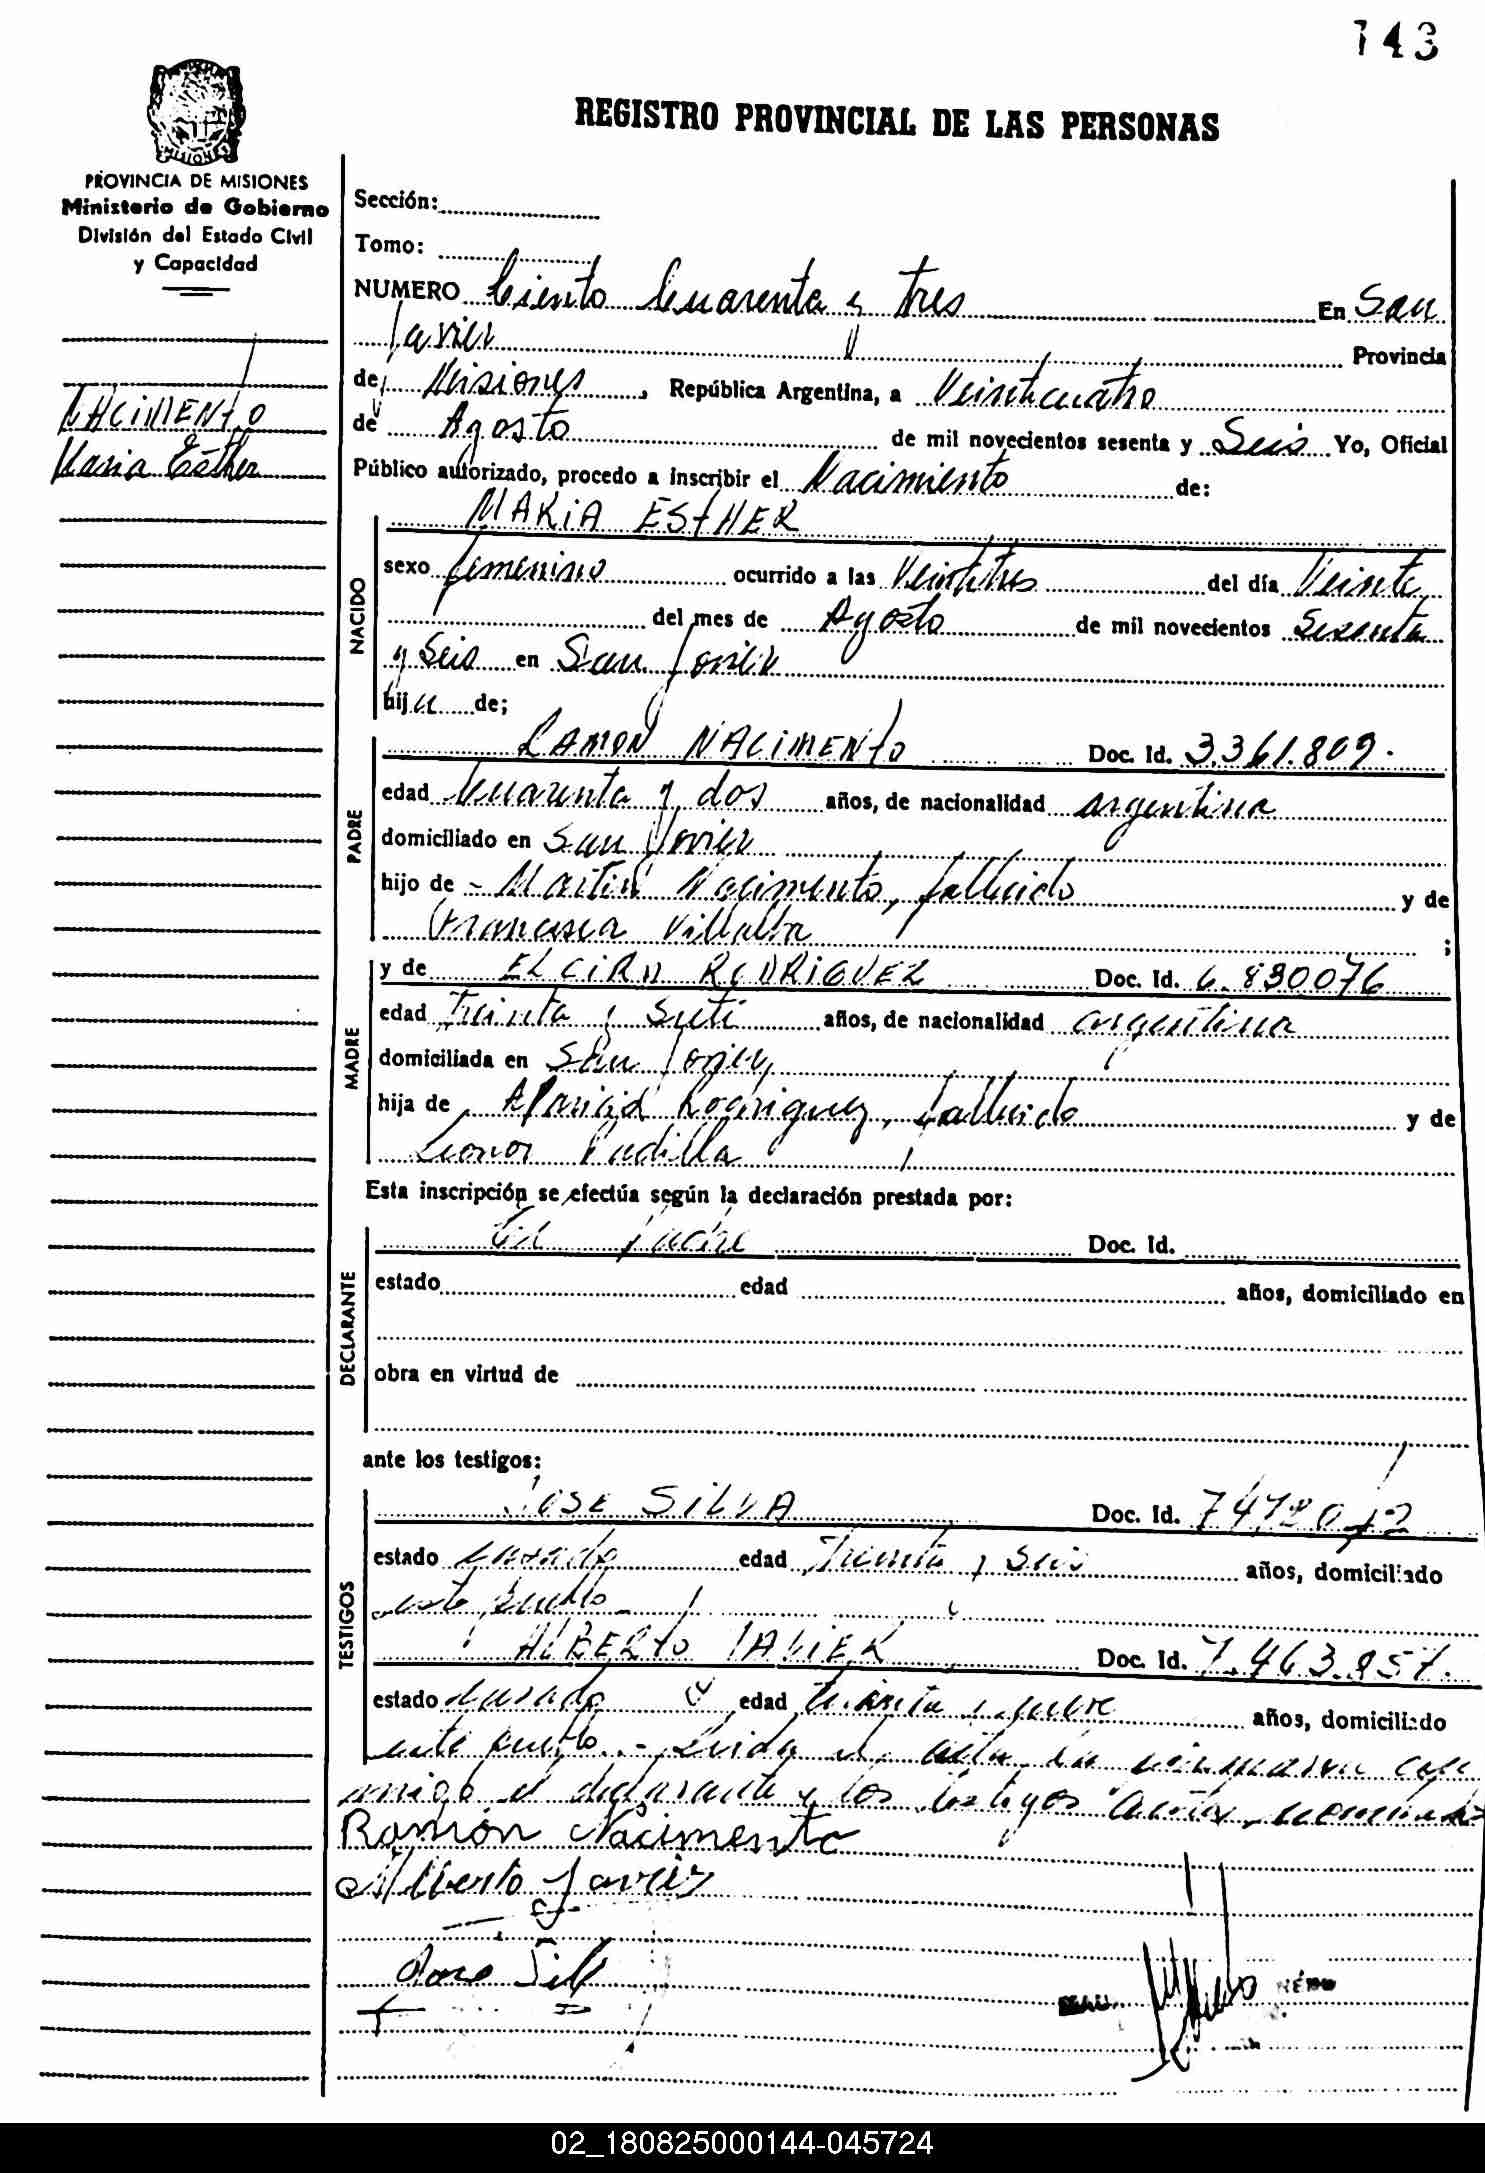 143
REGISTRO PROVINCIAL DE LAS PERSONAS
MISIONES
PROVINCIA DE MISIONES
Ministerio de Gobierno
División del Estado Civil
y Capacidad
NACIMENTO
Maria Esther
Sección:
Tomo:
NUMERO Ciento Cuarenta y tres En San
Javier Provincia
de Misiones, República Argentina, a Veinticuatro
de Agosto de mil novecientos sesenta y Seis Yo, Oficial
Público autorizado, procedo a inscribir el Nacimiento de:
NACIDO
MARIA ESTHER
sexo femenino ocurrido a las Veintitres del día Veinte
del mes de Agosto de mil novecientos Sesenta
y Seis en San Javier
hija de;
PADRE
RAMON NACIMENTO Doc. Id. 3.361.809.
edad Cuarenta y dos años, de nacionalidad argentina
domiciliado en San Javier
hijo de - Martin Nacimento, fallecido y de
Francisca Villalba ;
MADRE
y de ELCIRA RODRIGUEZ Doc. Id. 6.830076
edad Treinta y Siete años, de nacionalidad argentina
domiciliada en San Javier
hija de Aparicio Rodriguez, fallecido y de
Leonor Padilla
Esta inscripción se efectúa según la declaración prestada por:
DECLARANTE
El Padre Doc. Id.
estado edad años, domiciliado en
obra en virtud de
ante los testigos:
TESTIGOS
JOSE SILVA Doc. Id.
estado casado edad Treinta y seis años, domiciliado
este pueblo
ALBERTO JAVIER Doc. Id. 7.463.857.
estado casado edad treinta y nueve años, domiciliado
este pueblo.- Leida el acta la firmaron con
migo el declarante y los testigos
Ramón Nacimento
Alberto Javier
Jose Silv
02_180825000144-045724